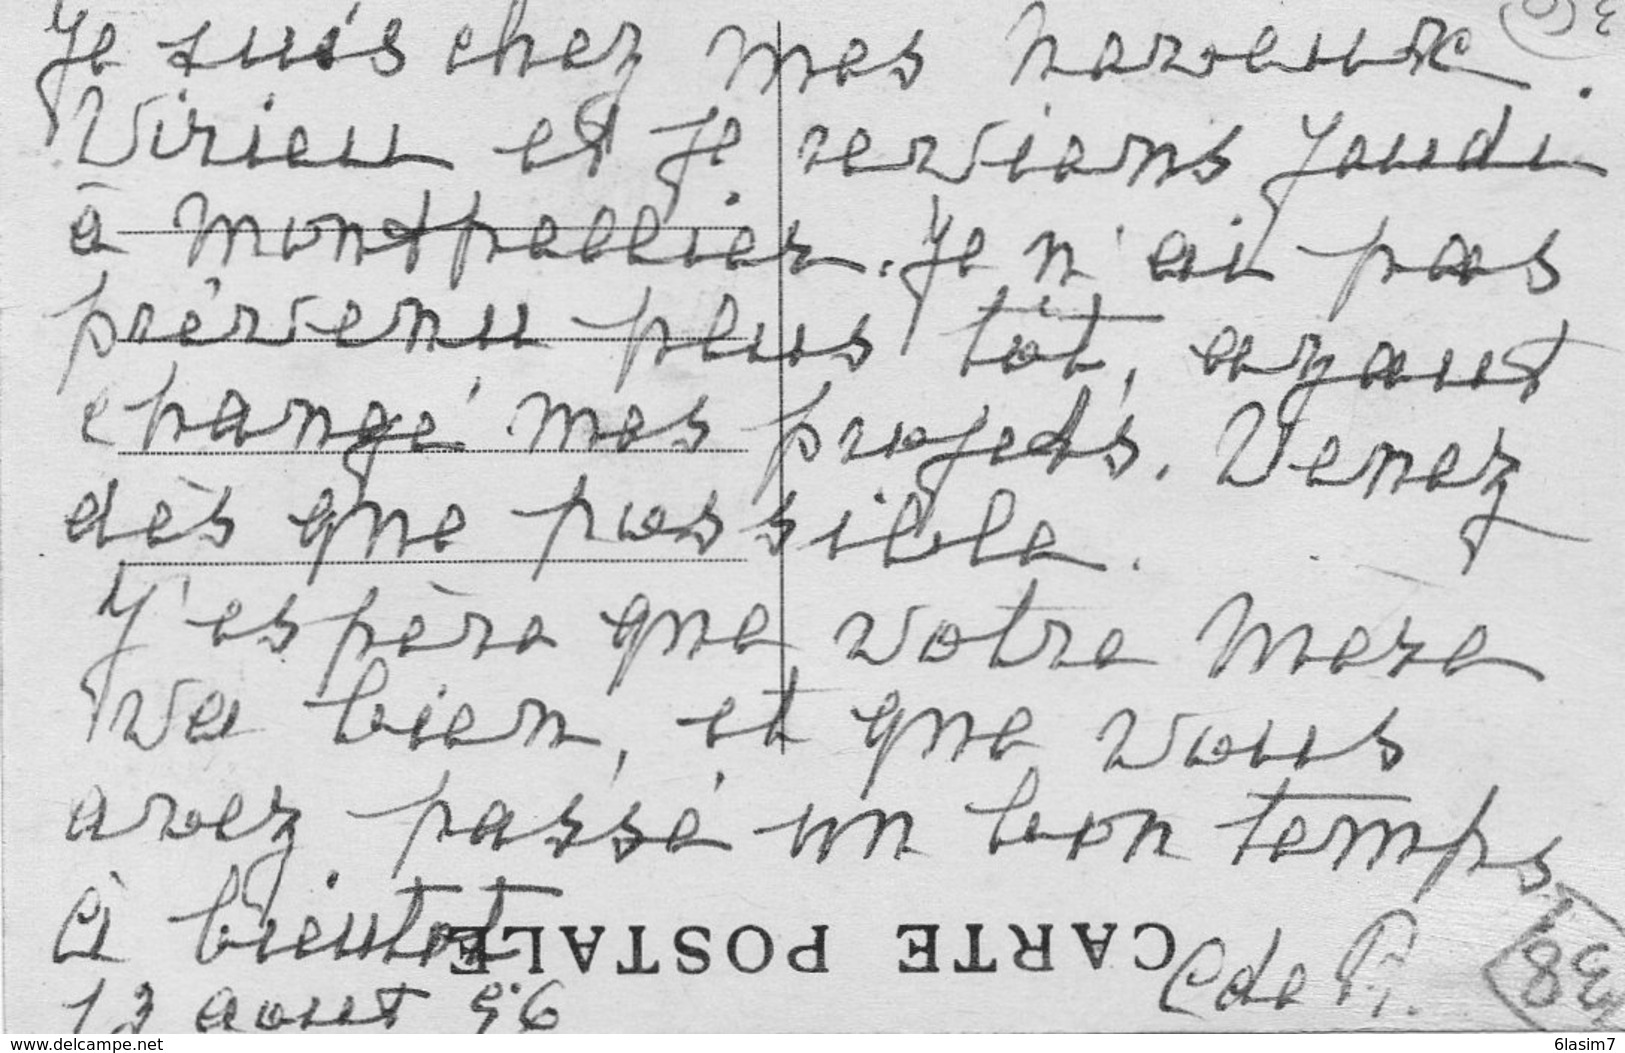 Je suis chez mes neveux
Virieu et je reviens jeudi
à Montpellier. Je n'ai pas
prévenu plus tôt, ayant
changé mes projets. Venez
dès que possible.
J'espère que votre Mère
va bien, et que vous
avez passé un bon temps
à bientôt
CARTE POSTALE
C de P.
13 aout 56
delcampe.net
6lasim7